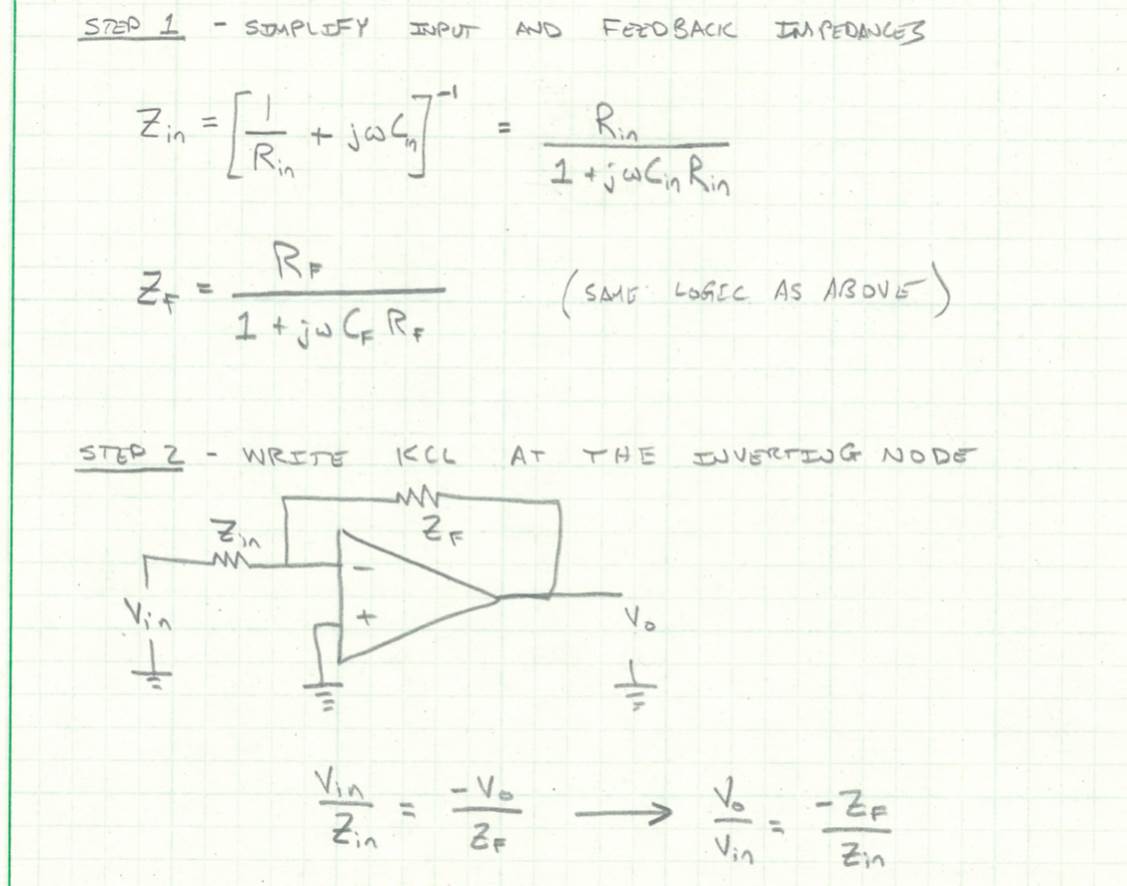 STEP 1 - SIMPLIFY INPUT AND FEEDBACK IMPEDANCES
Z_in = [1/R_in + jωC_in]^-1 = R_in/(1 + jωC_in R_in)
Z_F = R_F/(1 + jωC_F R_F) (SAME LOGIC AS ABOVE)
STEP 2 - WRITE KCL AT THE INVERTING NODE
Z_F
Z_in
-
+
V_in
V_o
V_in/Z_in = -V_o/Z_F → V_o/V_in = -Z_F/Z_in